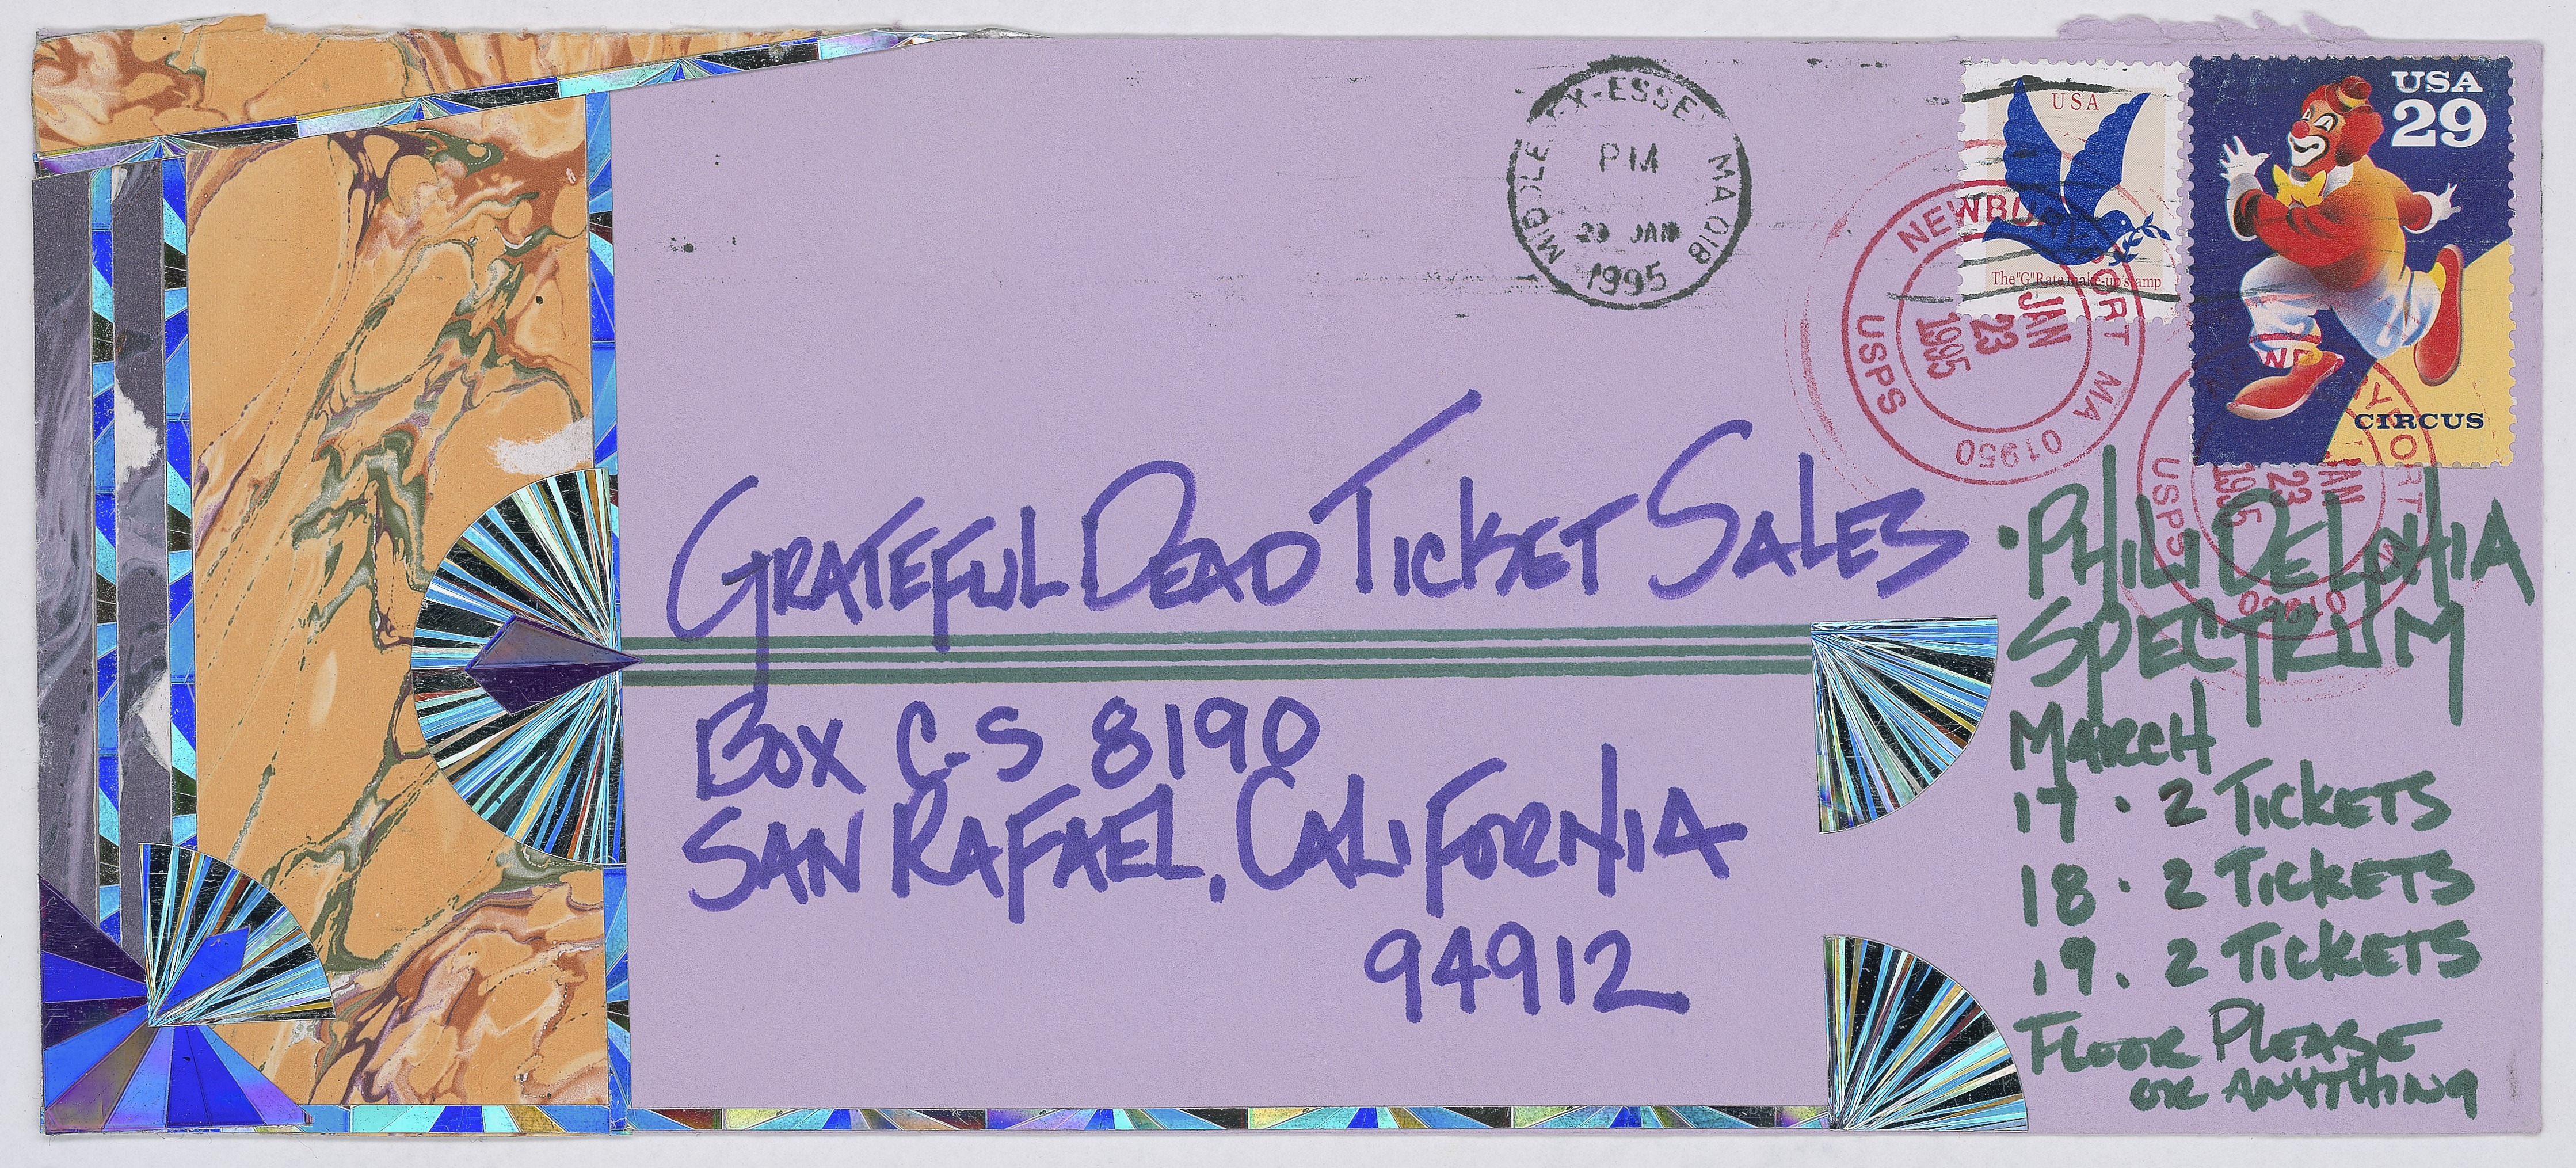 MIDDLESEX-ESSE
MA 018
PM
23 JAN
1995
USA
The "G" Rate make-up stamp
USA
29
CIRCUS
NEWBURYPORT MA 01950
USPS
JAN
23
1995
NEWBURYPORT MA 01950
USPS
JAN
23
1995
GRATEFUL DEAD TICKET SALES
BOX C-S 8190
SAN RAFAEL, CALIFORNIA
94912
• PHILIDELPHIA
SPECTRUM
MARCH
17 • 2 TICKETS
18 • 2 TICKETS
19 • 2 TICKETS
FLOOR PLEASE
OR ANYTHING